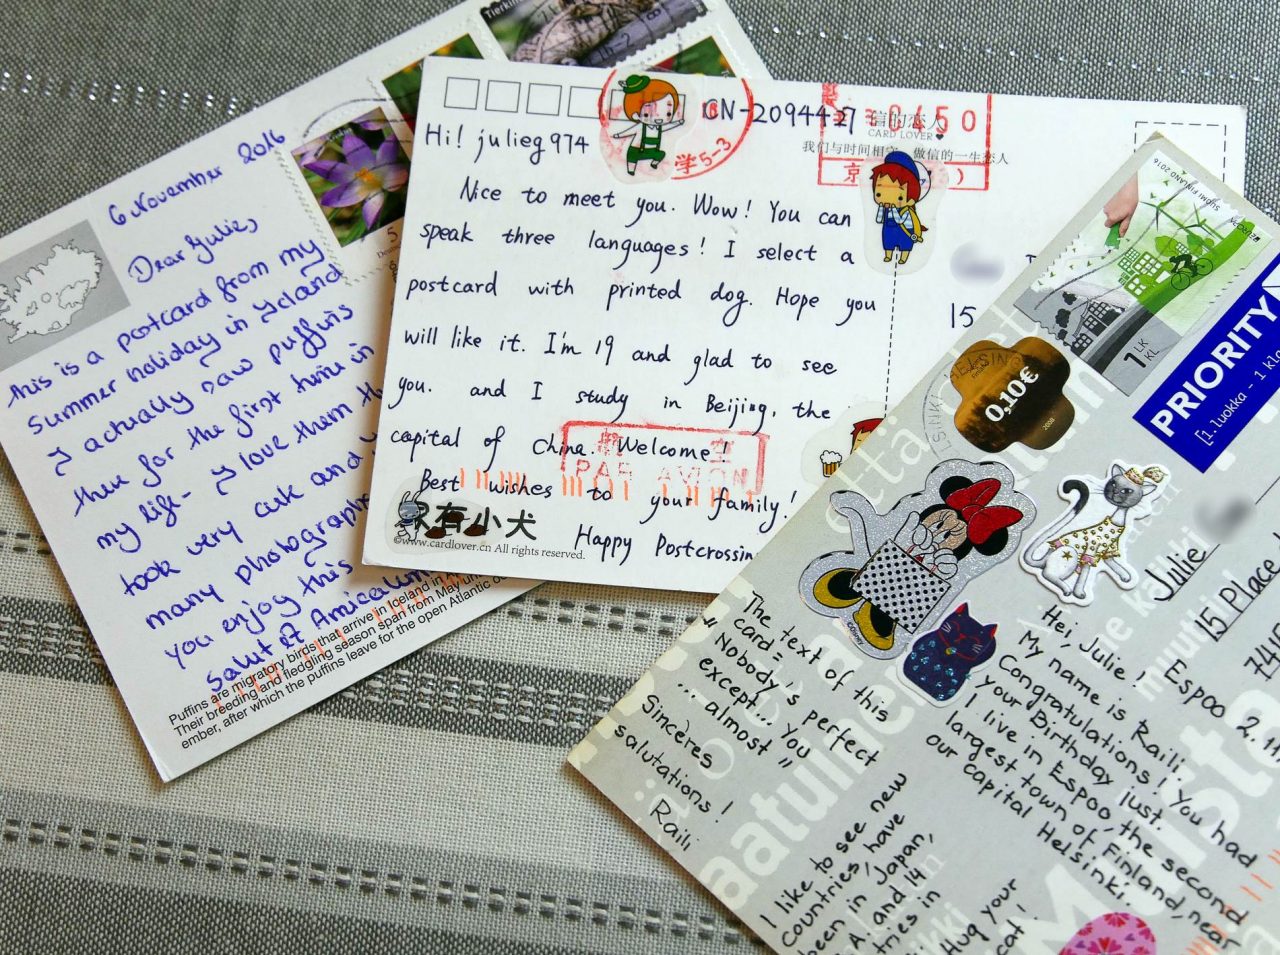 6 November 2016
Dear Julie,
this is a postcard from my
summer holiday in Iceland
I actually saw puffins
there for the first time in
my life - I love them
took very cute and
many photographs
you enjoy this
salut et Amical
Puffins are migratory birds that arrive in Iceland in
Their breeding and fledgling season span from May un
ember, after which the puffins leave for the open Atlantic
Tierkin
CN-2094427
学5-3
0450
信的恋人
CARD LOVER
我们与时间相守 做信的一生恋人
京
Hi! julieg974
Nice to meet you. Wow! You can
speak three languages! I select a
postcard with printed dog. Hope you
will like it. I'm 19 and glad to see
you. and I study in Beijing, the
capital of China. Welcome!
PAR AVION
Best wishes to your family!
家有小犬
Happy Postcrossin
©www.cardlover.cn All rights reserved.
15
SUOMI FINLAND 2016
1 LK
KL
PRIORITY
[1. luokka - 1 kla
HELSINKI
0,10€
Julie
15 Place
Espoo 2.11
Hei, Julie!
My name is Raili.
Congratulations! You had
your Birthday just.
I live in Espoo, the second
largest town of Finland, near
our capital Helsinki.
The text of this
card:
"Nobody's perfect
except... you
... almost"
Sincères
salutations!
Raili
I like to see new
countries, have
been in Japan,
A. and 14
tries in
Hug your
cat!